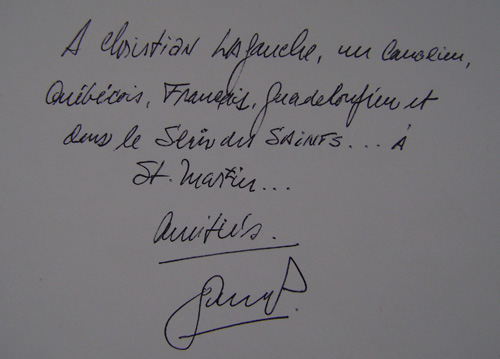 A Christian Lagauche, un Canadien,
Québécois, Français, Guadeloupéen et
dans le Sein des SAINTS... À
St. Martin...
Amitiés.